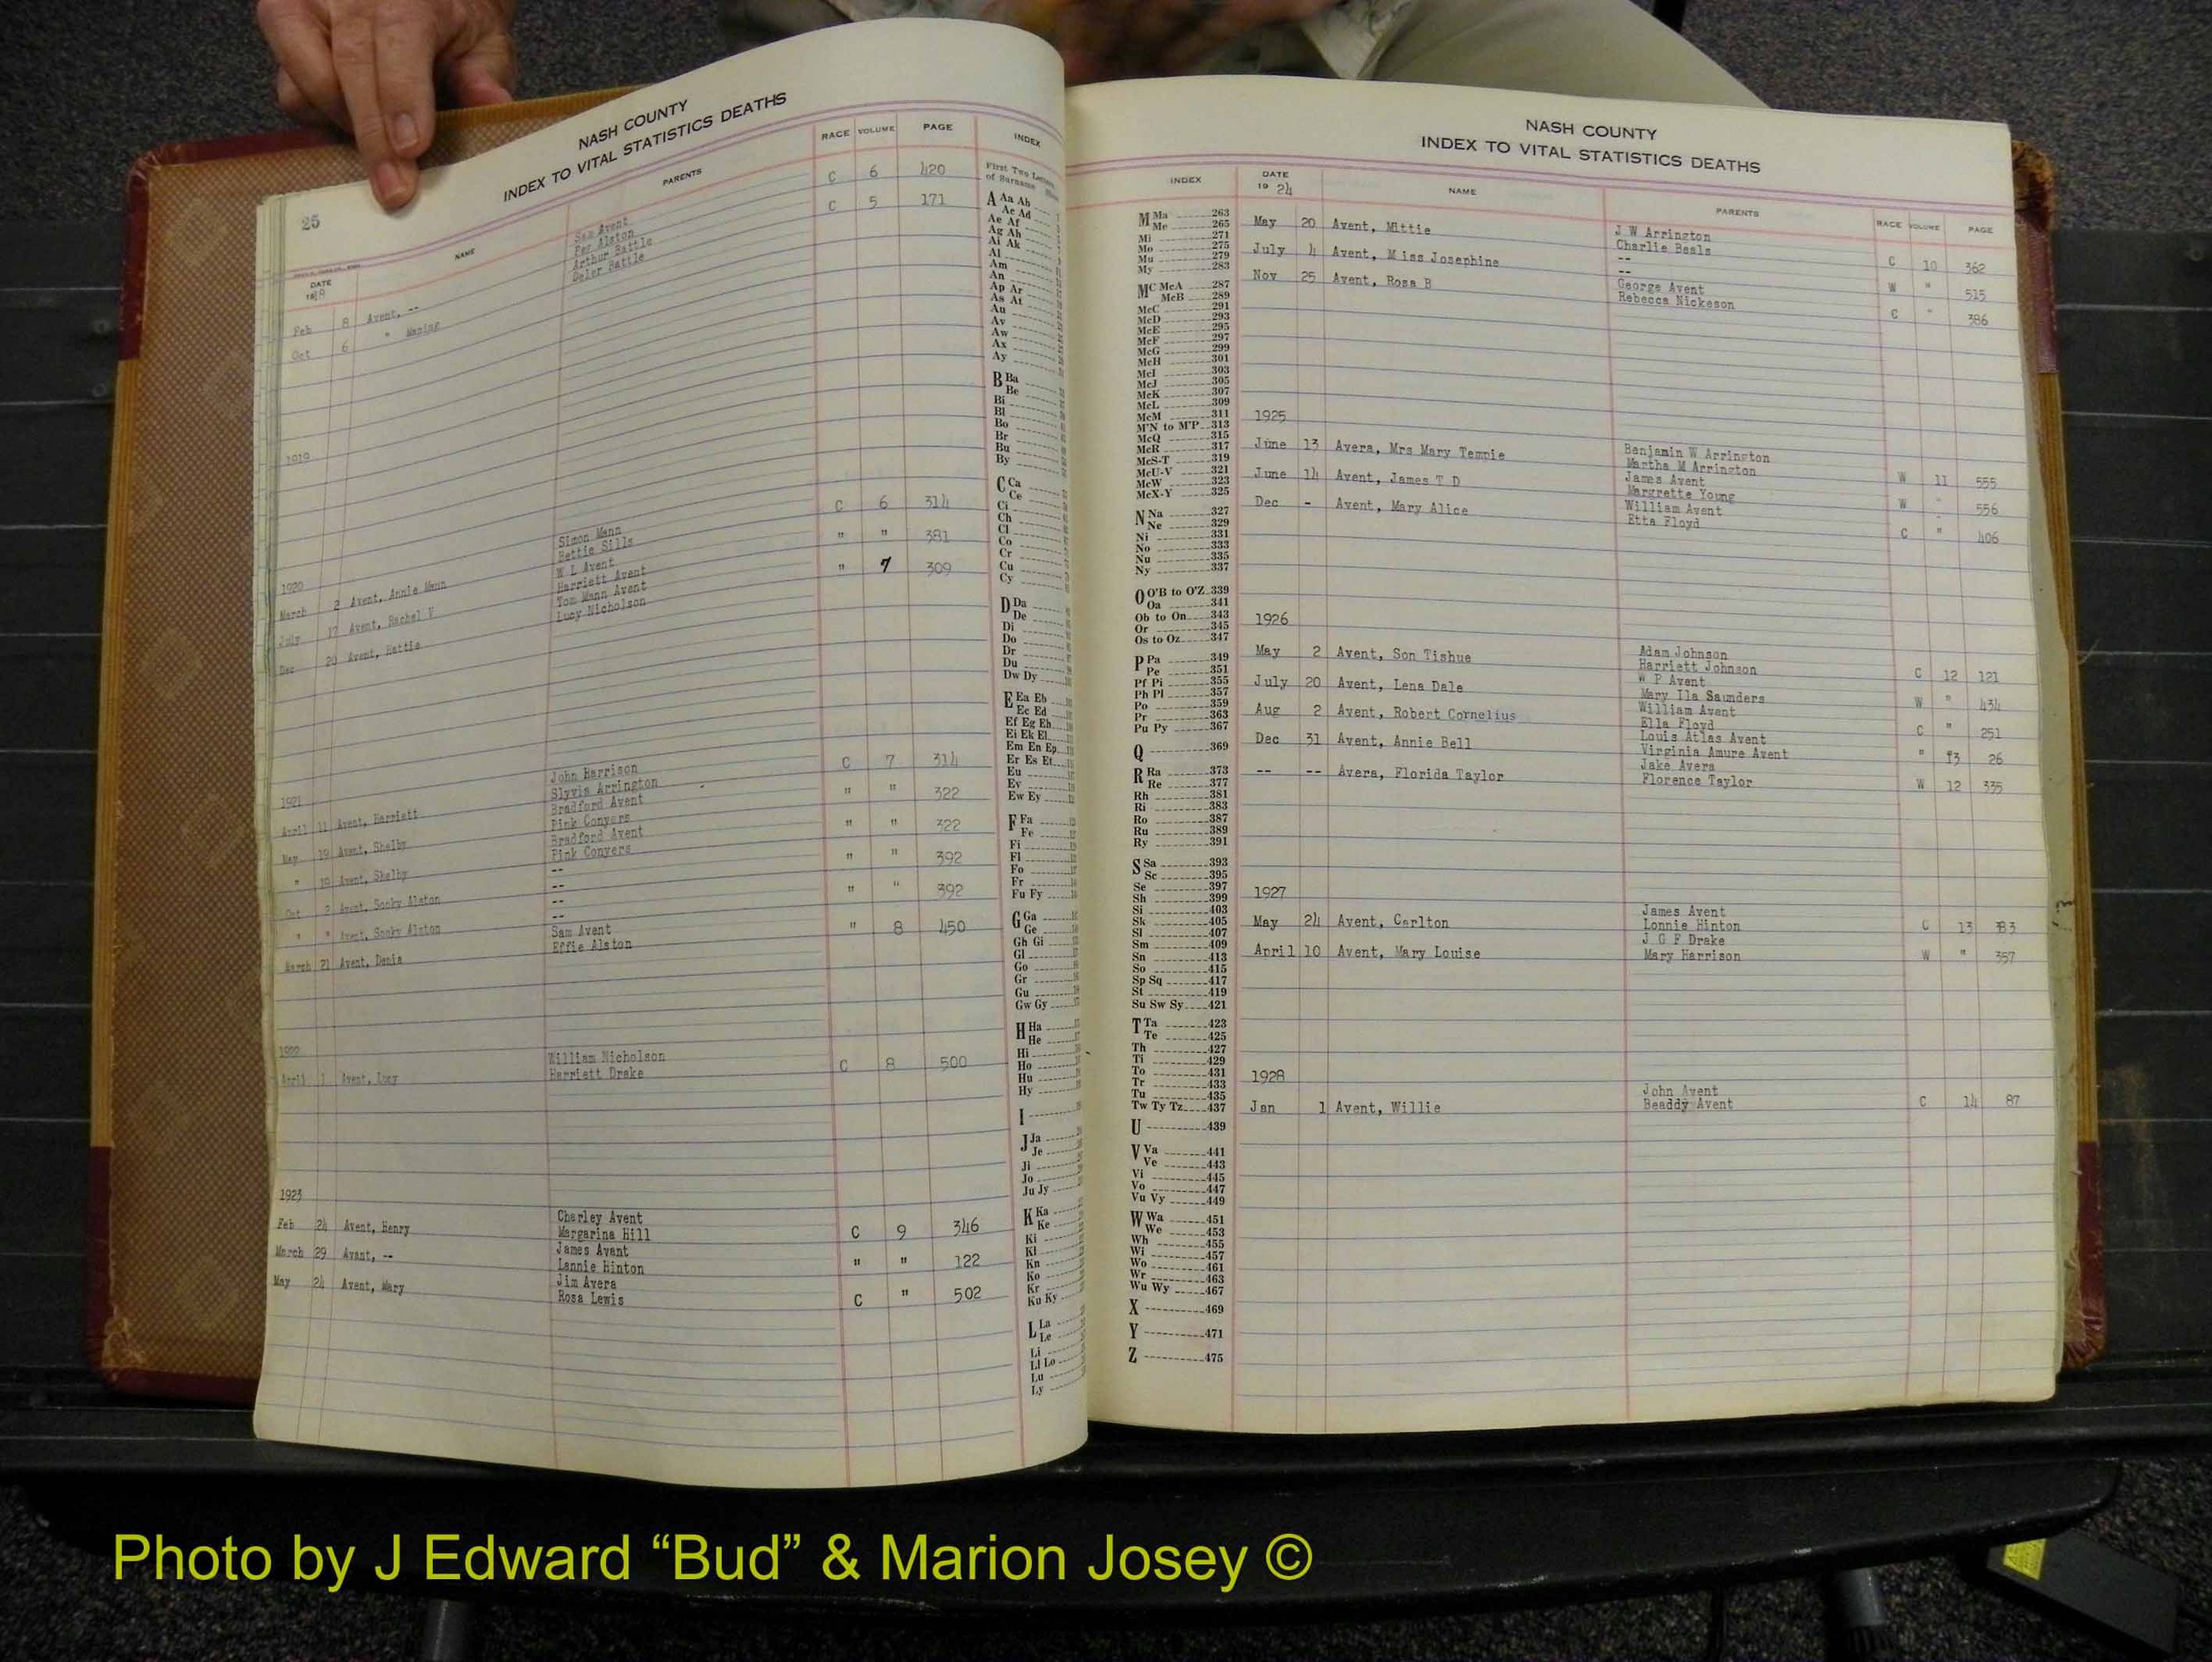 25
NASH COUNTY
INDEX TO VITAL STATISTICS DEATHS
DATE NAME PARENTS RACE VOLUME PAGE
1918
Feb 8 Avent, -- Sam Avent C 6 420
Alston
Oct 6 " Arthur Battle C 5 171
Battle
1919
1920
March 2 Avent, Annie Mann Simon Mann C 6 314
Bettie Sills
July 17 Avent, Rachel V W L Avent " " 381
Harriett Avent
Dec 20 Avent, Hattie Tom Mann Avent " 7 309
Lucy Nicholson
1921
April 11 Avent, Harriett John Harrison C 7 314
Slyvia Arrington
May 19 Avent, Shelby Bradford Avent " " 322
Pink Conyers
" 19 Avent, Shelby Bradford Avent " " 322
Pink Conyers
Oct 2 Avent, Sooky Alston -- " " 392
--
" " Avent, Sooky Alston -- " " 392
--
March 21 Avent, Denia Sam Avent " 8 450
Effie Alston
1922
April 1 Avent, Lucy William Nicholson C 8 500
Harriett Drake
1923
Feb 24 Avent, Henry Charley Avent C 9 346
Margarina Hill
March 29 Avant, -- James Avant " " 122
Lannie Hinton
May 24 Avent, Mary Jim Avera C " 502
Rosa Lewis
INDEX
First Two Letters
of Surname
A Aa Ab
Ac Ad
Ae Af
Ag Ah
Ai Ak
Al
Am
An
Ap Ar
As At
Au
Av
Aw
Ax
Ay
B Ba
Be
Bi
Bl
Bo
Br
Bu
By
C Ca
Ce
Ci
Ch
Cl
Co
Cr
Cu
Cy
D Da
De
Di
Do
Dr
Du
Dw Dy
E Ea Eb
Ec Ed
Ef Eg Eh
Ei Ek El
Em En Ep
Er Es Et
Eu
Ev
Ew Ey
F Fa
Fe
Fi
Fl
Fo
Fr
Fu Fy
G Ga
Ge
Gh Gi
Gl
Go
Gr
Gu
Gw Gy
H Ha
He
Hi
Ho
Hu
Hy
I
J Ja
Je
Ji
Jo
Ju Jy
K Ka
Ke
Ki
Kl
Kn
Ko
Kr
Ku Ky
L La
Le
Li
Ll Lo
Lu
Ly
NASH COUNTY
INDEX TO VITAL STATISTICS DEATHS
INDEX
M Ma 263
Me 265
Mi 271
Mo 275
Mu 279
My 283
MC McA 287
McB 289
McC 291
McD 293
McE 295
McF 297
McG 299
McH 301
McI 303
McJ 305
McK 307
McL 309
McM 311
M'N to M'P 313
McQ 315
McR 317
McS-T 319
McU-V 321
McW 323
McX-Y 325
N Na 327
Ne 329
Ni 331
No 333
Nu 335
Ny 337
O O'B to O'Z 339
Oa 341
Ob to On 343
Or 345
Os to Oz 347
P Pa 349
Pe 351
Pf Pi 355
Ph Pl 357
Po 359
Pr 363
Pu Py 367
Q 369
R Ra 373
Re 377
Rh 381
Ri 383
Ro 387
Ru 389
Ry 391
S Sa 393
Sc 395
Se 397
Sh 399
Si 403
Sk 405
Sl 407
Sm 409
Sn 413
So 415
Sp Sq 417
St 419
Su Sw Sy 421
T Ta 423
Te 425
Th 427
Ti 429
To 431
Tr 433
Tu 435
Tw Ty Tz 437
U 439
V Va 441
Ve 443
Vi 445
Vo 447
Vu Vy 449
W Wa 451
We 453
Wh 455
Wi 457
Wo 461
Wr 463
Wu Wy 467
X 469
Y 471
Z 475
DATE NAME PARENTS RACE VOLUME PAGE
1924
May 20 Avent, Mittie J W Arrington C 10 362
Charlie Beals
July 4 Avent, Miss Josephine -- W " 515
--
Nov 25 Avent, Rosa B George Avent C " 386
Rebecca Nickeson
1925
June 13 Avera, Mrs Mary Temple Benjamin W Arrington W 11 555
Martha M Arrington
June 14 Avent, James T D James Avent W " 556
Margrette Young
Dec - Avent, Mary Alice William Avent C " 406
Etta Floyd
1926
May 2 Avent, Son Tishue Adam Johnson C 12 121
Harriett Johnson
July 20 Avent, Lena Dale W P Avent W " 434
Mary Ila Saunders
Aug 2 Avent, Robert Cornelius William Avent C " 251
Ella Floyd
Dec 31 Avent, Annie Bell Louis Atlas Avent " 13 26
Virginia Amure Avent
-- -- Avera, Florida Taylor Jake Avera W 12 335
Florence Taylor
1927
May 24 Avent, Carlton James Avent C 13 383
Lonnie Hinton
April 10 Avent, Mary Louise J G F Drake W " 357
Mary Harrison
1928
Jan 1 Avent, Willie John Avent C 14 87
Beaddy Avent
Photo by J Edward “Bud” & Marion Josey ©